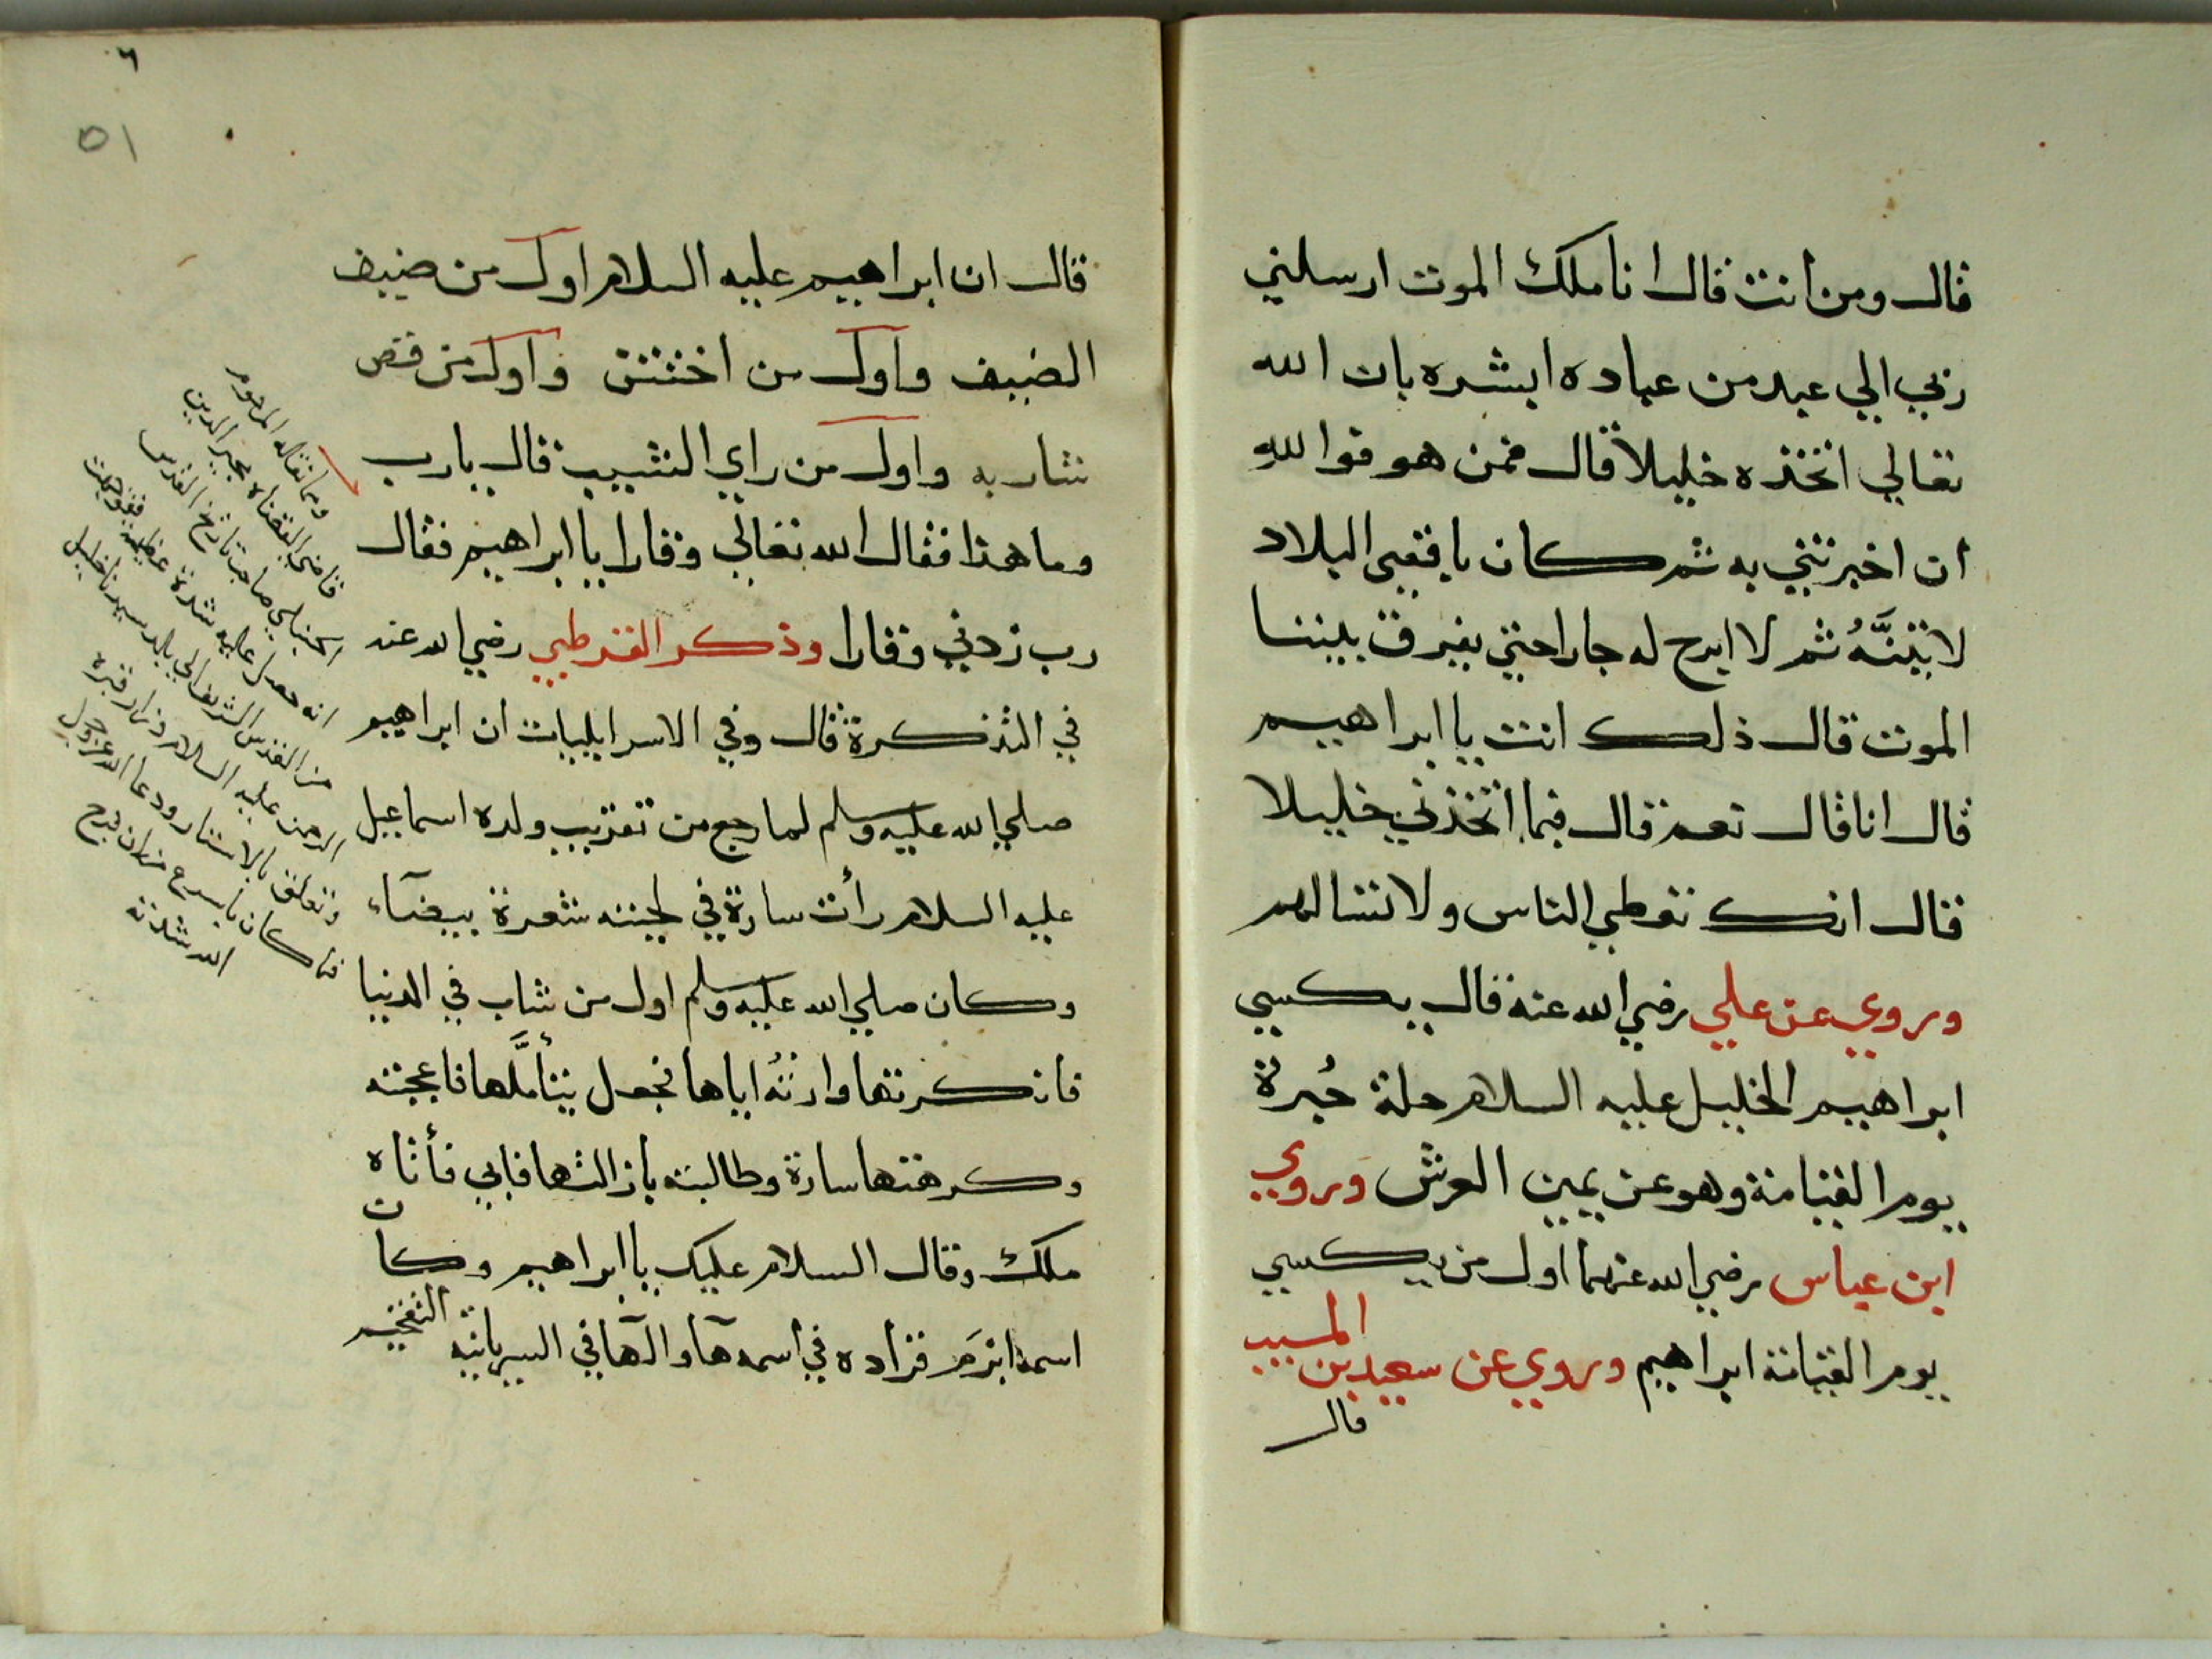 قال ومن انت قال انا ملك الموت ارسلني
ربي الي عبد من عباده ابشره بان الله
تعالي اتخذه خليلا قال فمن هو فوالله
ان اخبرتني به ثم كان باقصى البلاد
لاتينَّهُ ثم لا ابرح له جارا حتي يفرق بيننا
الموت قال ذلك انت يا ابراهيم
قال انا قال نعم قال فبما اتخذني خليلا
قال انك تعطي الناس ولا تسالهم
وروي عن علي رضي الله عنه قال يكسي
ابراهيم الخليل عليه السلام حلة حُبرة
يوم القيامة وهو عن يمين العرش وروي
ابن عباس رضي الله عنهما اول من يكسي
يوم القيامة ابراهيم وروي عن سعيد بن المسيب
قال
٦
٥١
قال ان ابراهيم عليه السلام اول من ضيف
الضيف واول من اختتن واول من قص
شاربه واول من راي الشيب قال يارب
وما هذا فقال الله تعالي وقارا يا ابراهيم فقال
رب زدني وقارا وذكر القرطبي رضي الله عنه
في التذكرة قال وفي الاسرايليات ان ابراهيم
صلي الله عليه وسلم لما رجع من تقريب ولده اسماعيل
عليه السلام رأت سارة في لحيته شعرة بيضآء
وكان صلي الله عليه وسلم اول من شاب في الدنيا
فانكرتها وارتهُ اياها فجعل يتأملَّها فاعجبته
وكرهتها سارة وطالبته بازالتها فابي فأتاه
ملك وقال السلام عليك يا ابراهيم وكان
اسمه ابرَم فزاده في اسمه هآ والهآ في السريانية التفخيم
ومما نقله المرحوم
قاضي القضاه مجير الدين
الحنبلي صاحب تاريخ القدس
انه حصل عليه شدة عظيمة فتوجه
من القدس الشريف الي بلد سيدنا خليل
الرحمن عليه السلام وزار قبره
وتعلق بالاستار ودعا الله عز وجل
فما كان باسرع من ان فرج
الله شدته